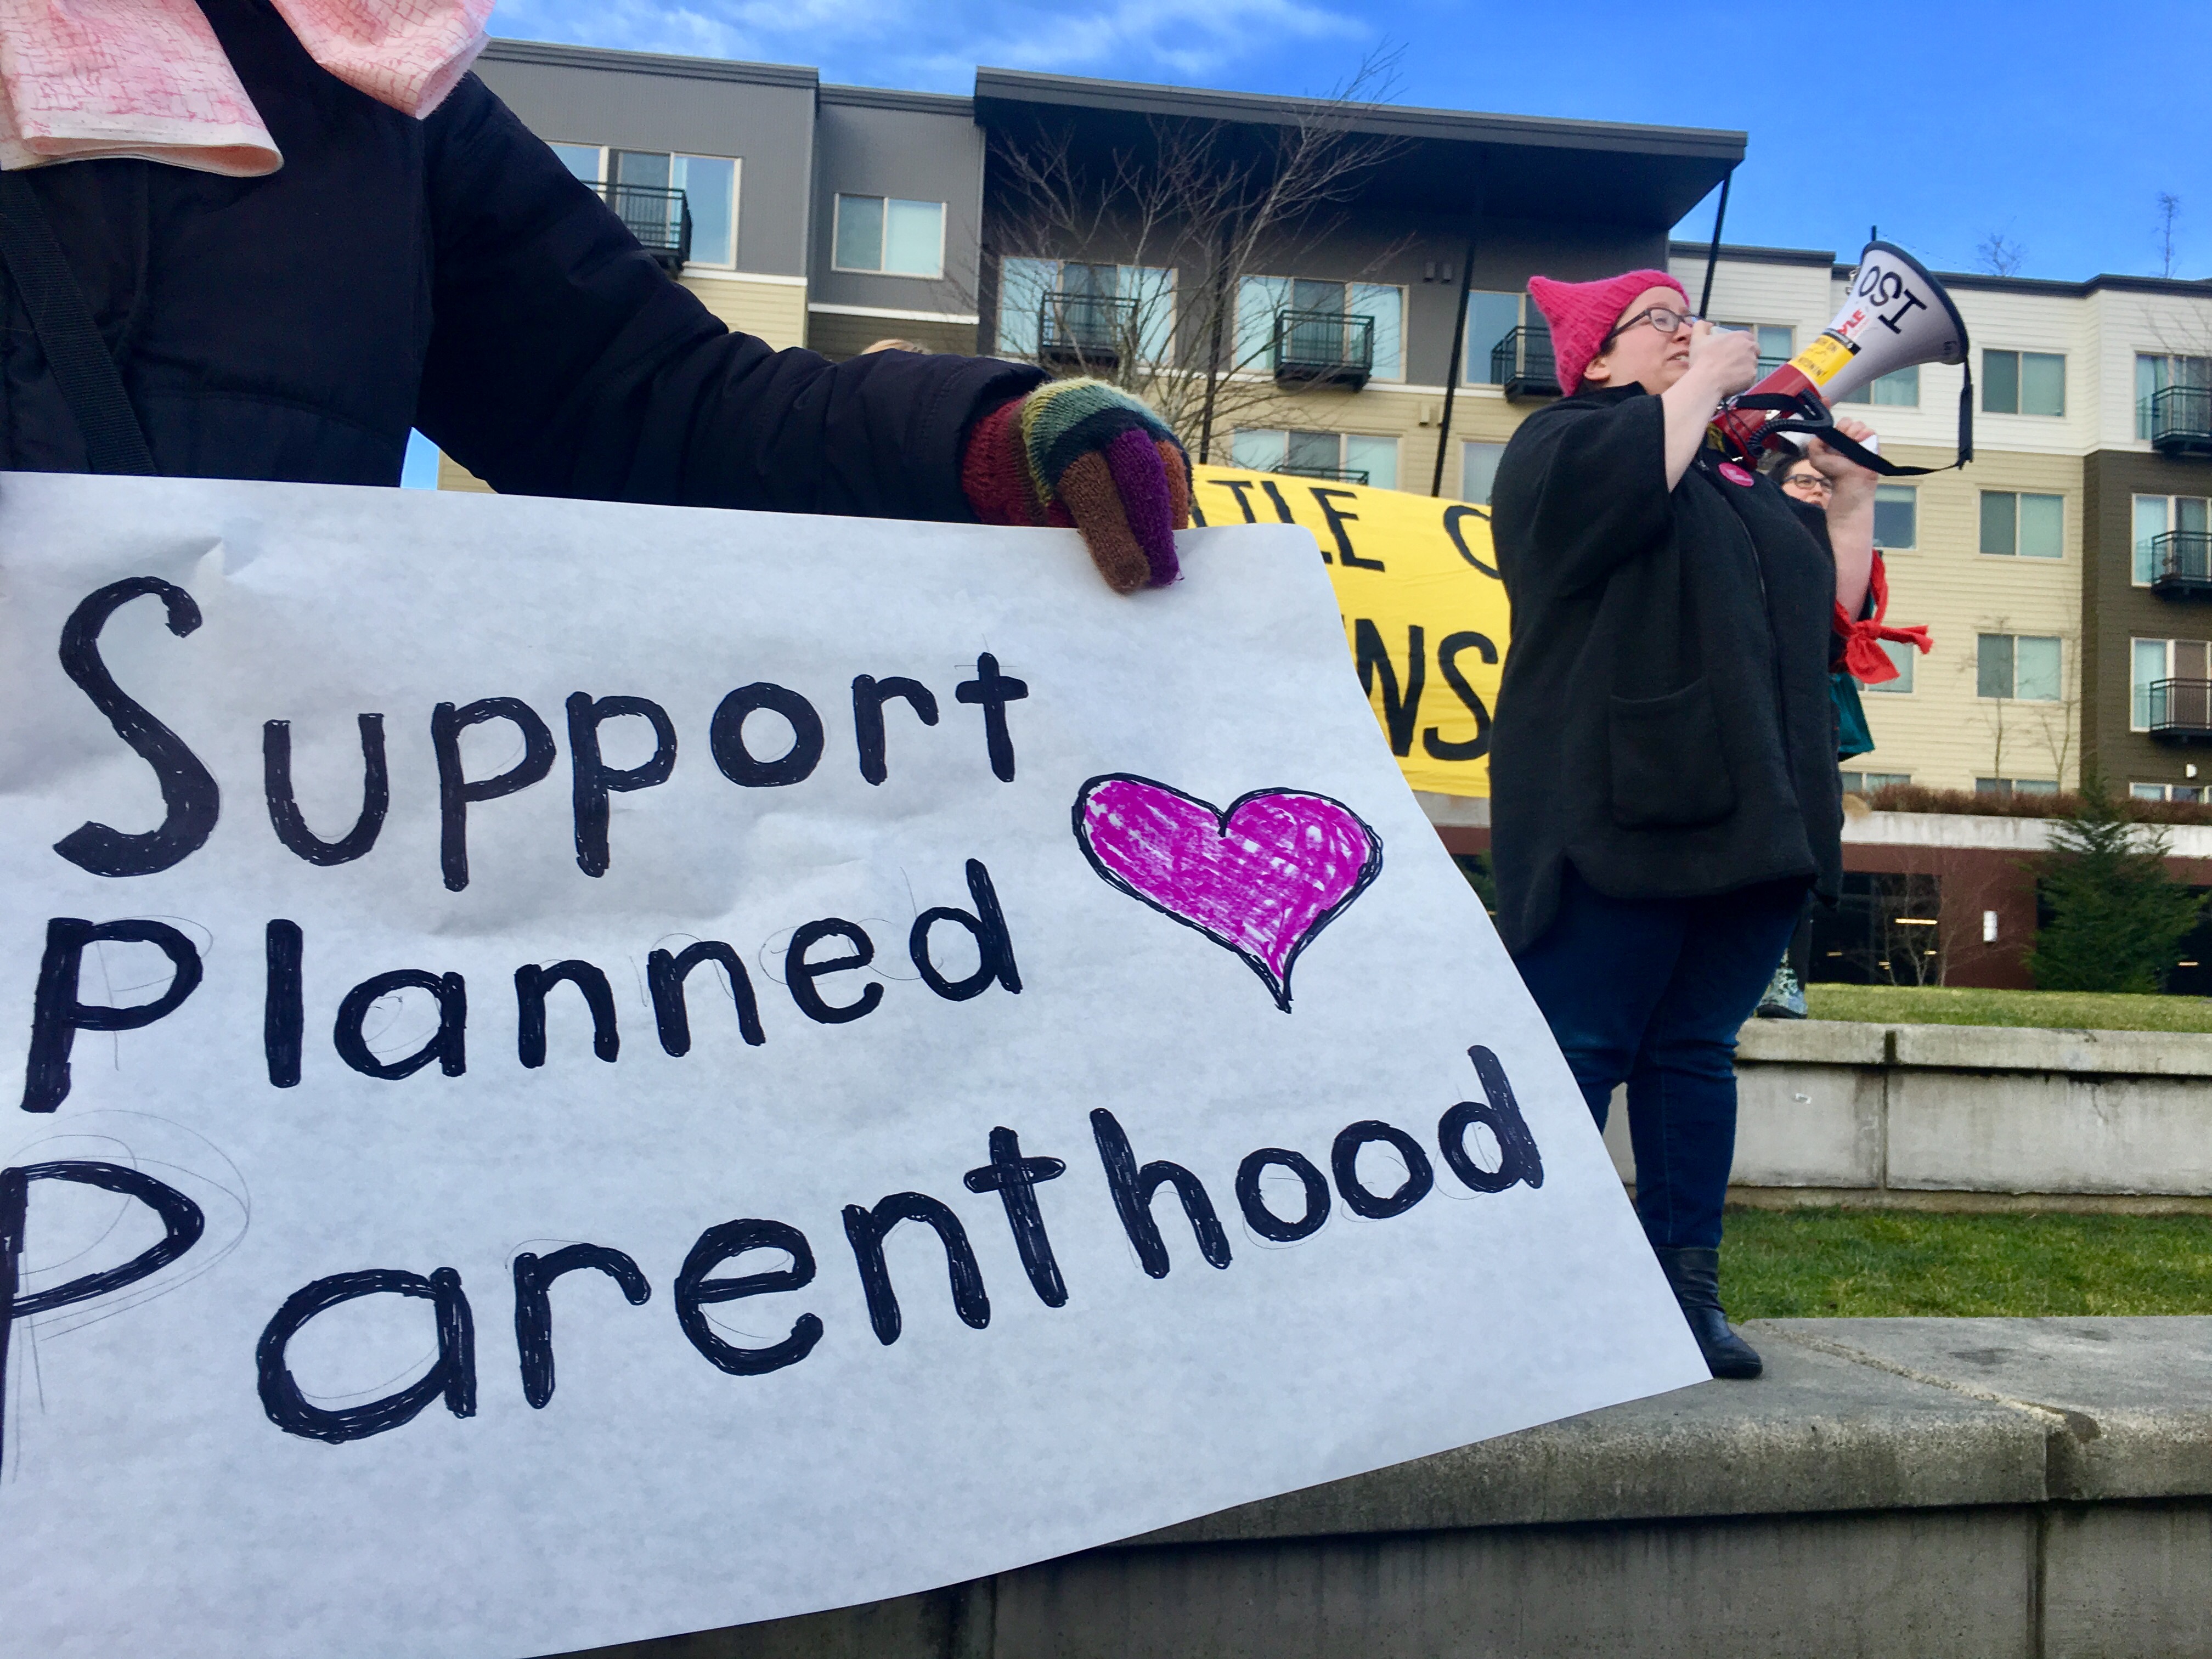 Support
Planned
Parenthood
TLE
NS
ISO